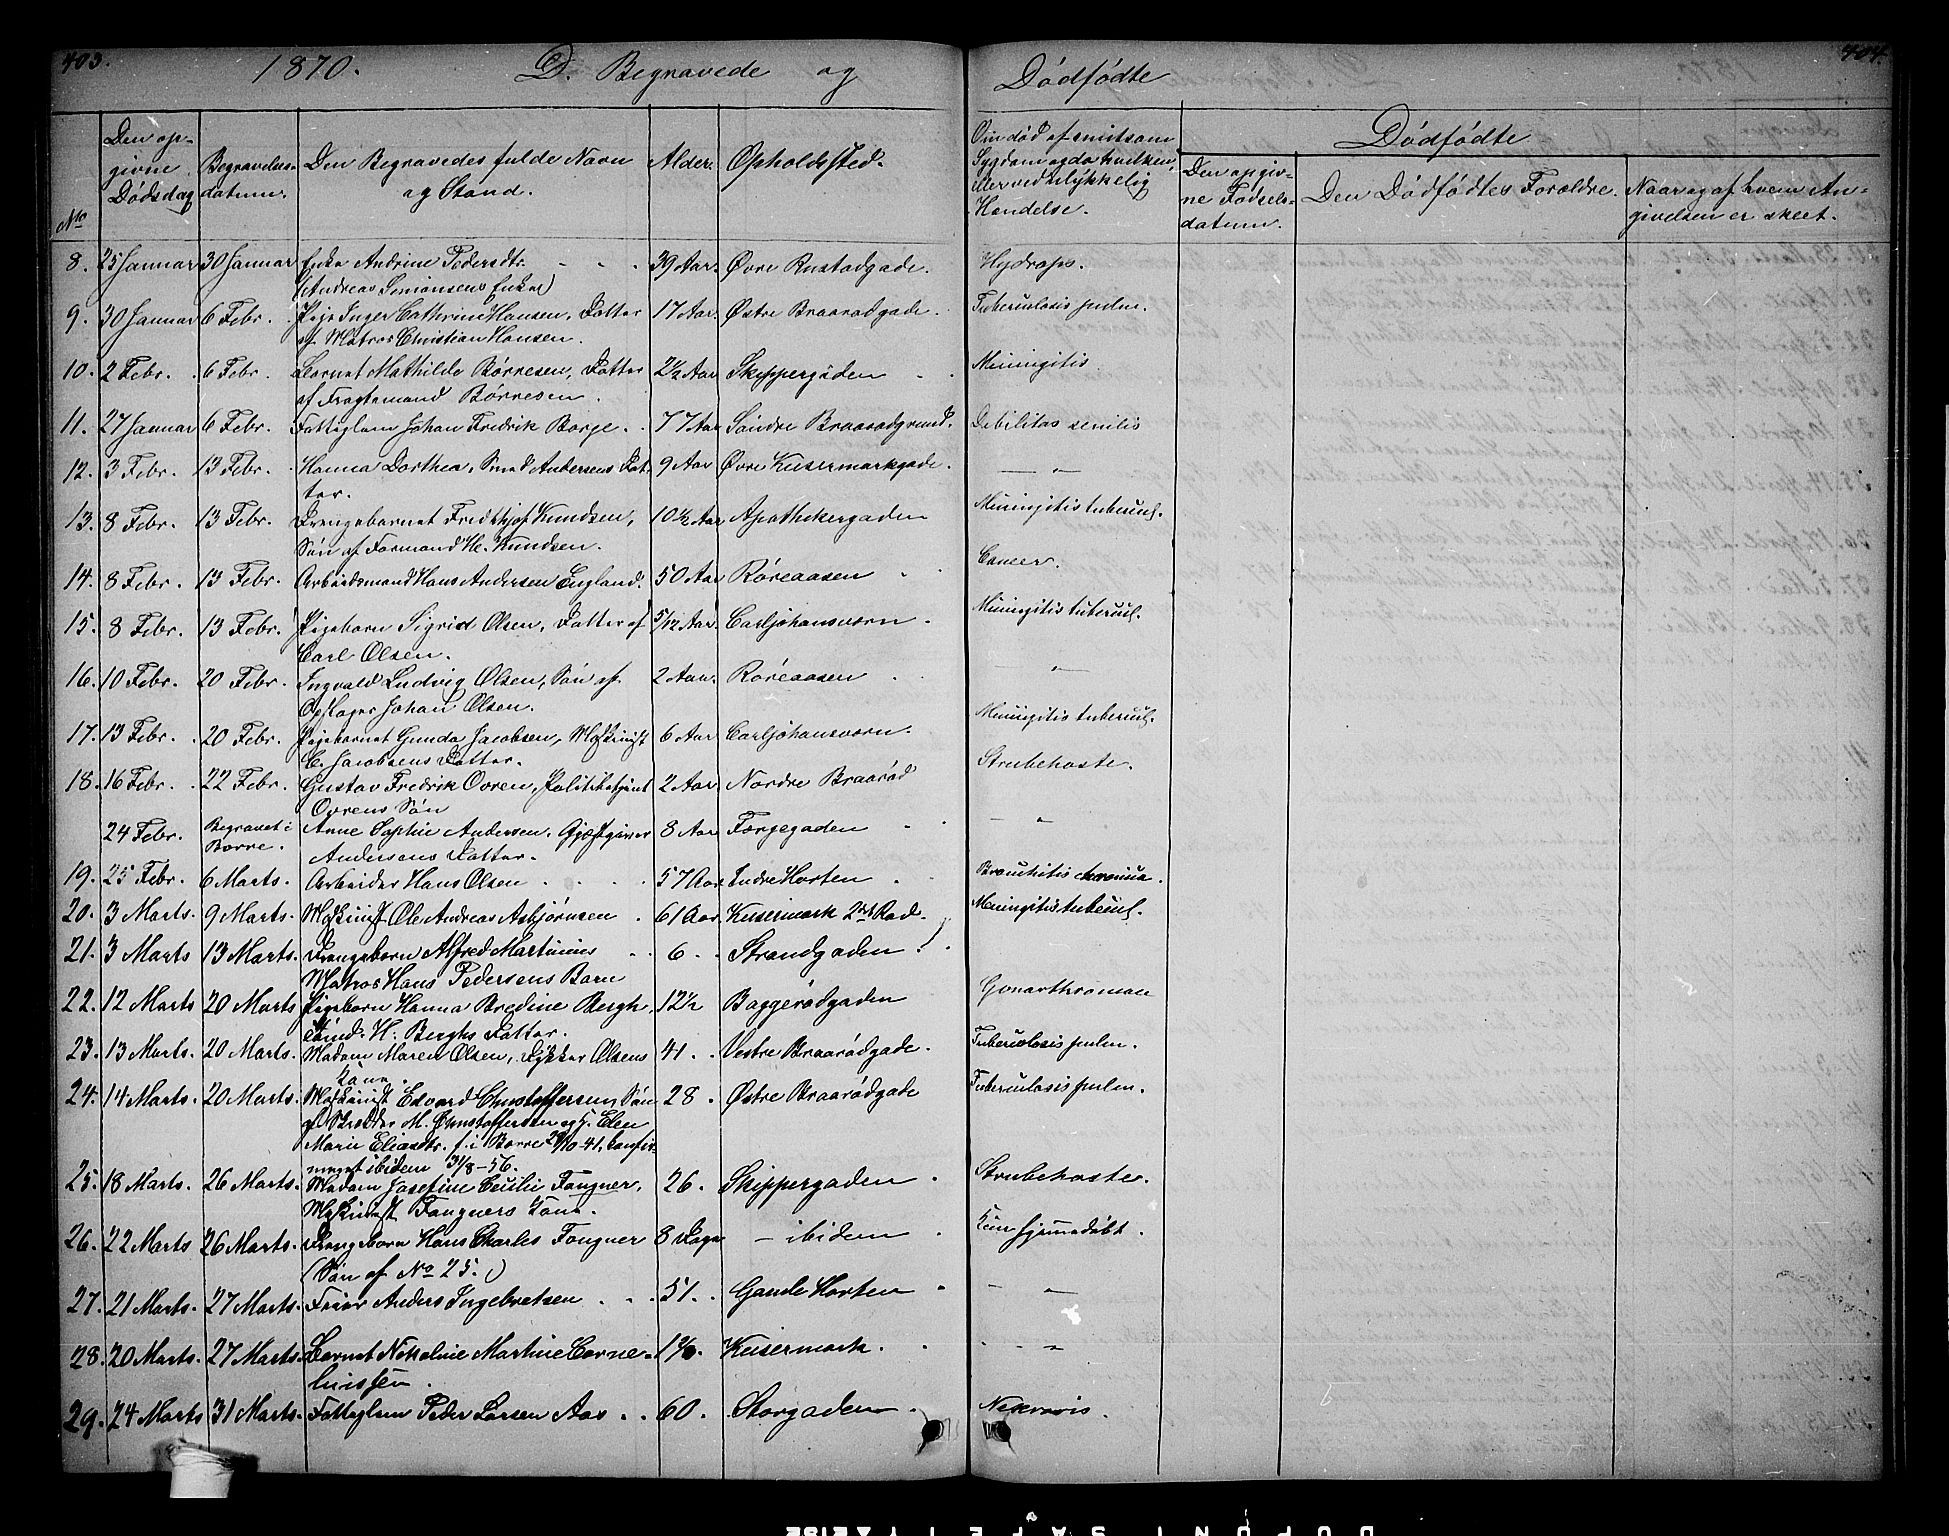 403.
1870. D. Begravede og Dødfødte
404.
No
Den op-
givne
Dødsdag
Begravelses-
datum.
Den Begravedes fulde Navn
og Stand.
Alder.
Opholdsted.
Om død af smitsom
Sygdom og da hvilken,
eller ved ulykkelig
Hendelse.
Dødfødte
Den opgiv-
ne Fødsels-
datum.
Den Dødfødtes Forældre.
Naar og af hvem An-
givelsen er skeet.
8. 25 Januar 30 Januar Enke Andrine Pedersdtr. 39 Aar. Øvre Rustadgade. Hydrops.
(Andreas Simonsens Enke)
9. 30 Januar 6 Febr. Pige Inger Cathrine Hansen, Datter 17 Aar. Østre Braarødgade. Tuberculosis pulm.
af Matros Christian Hansen.
10. 2 Febr. 6 Febr. Barnet Mathilde Børresen, Datter 2½ Aar Skippergaden Meningitis
af Fragtemand Børresen.
11. 27 Januar 6 Febr. Fattiglem Johan Fredrik Borge. 77 Aar Søndre Braarødgrund. Debilitas senilis
12. 3 Febr. 13 Febr. Hanna Dorthea, Smed Andersens Dat- 9 Aar Øvre Keisermarkgade. — " —
ter.
13. 8 Febr. 13 Febr. Drengebarnet Fredthjof Knudsen, 10½ Aar Apothekergaden Meningitis tubercul.
Søn af Formand H. Knudsen.
14. 8 Febr. 13 Febr. Arbeidsmand Hans Andersen England. 50 Aar Røreaasen Cancer.
15. 8 Febr. 13 Febr. Pigebarn Sigrid Olsen, Datter af 5/12 Aar Carljohansvorn. Meningitis tubercul.
Carl Olsen.
16. 10 Febr. 20 Febr. Ingvald Ludvig Olsen, Søn af 2 Aar. Røreaasen — " —
Opslager Johan Olsen.
17. 13 Febr. 20 Febr. Pigebarnet Gunda Jacobsen, Maskinist 6 Aar Carljohansvorn. Meningitis tubercul.
C. Jacobsens Datter.
18. 16 Febr. 22 Febr. Gustav Fredrik Ovren, Politibetjent 2 Aar Nordre Braarød Strubehoste.
Ovrens Søn
24 Febr. Begravet i Borre. Anne Sophie Andersen, Gjæstgiver 8 Aar Færgegaden — "
Andersens Datter.
19. 25 Febr. 6 Marts. Arbeider Hans Olsen 57 Aar Indre Horten Bronchitis chronica.
20. 3 Marts. 9 Marts. Maskinist Ole Andreas Asbjørnsen 61 Aar. Keisermark 2den Rad. Meningitis tubercul.
21. 3 Marts 13 Marts. Drengebarn Alfred Martinius 6 Strandgaden
Matros Hans Pedersens Barn
22. 12 Marts 20 Marts Pigebarn Hanna Bredine Bergh, 12½ Baggerødgaden Gonarthroman
H. Berghs Datter.
23. 13 Marts. 20 Marts. Madam Maren Olsen, Dykker Olsens 41. Vestre Braarødgade. Tuberculosis pulm.
Kone.
24. 14 Marts. 20 Marts. Maskinist Edvard Christoffersen, Søn 28. Østre Braarødgade Tuberculosis pulm.
af M. Christoffersen og Elen
Marie Eliasdtr. f. i Borre 29/10 41, confir-
meret ibidem 31/8-56.
25. 18 Marts. 26 Marts. Madam Josefine Cecilie Fougner, 26. Skippergaden Strubehoste.
Maskinist Fougners Kone.
26. 22 Marts 26 Marts. Drengebarn Hans Charles Fougner 8 Dage — ibidem Kun hjemmedøbt.
(Søn af No 25.)
27. 21 Marts. 27 Marts. Feier Anders Ingebretsen 51. Gamle Horten — " —
28. 20 Marts. 27 Marts. Barnet Nikoline Martine Corne- Keisermark. "
liussen.
29. 24 Marts 31 Marts. Fattiglem Peder Larsen Aas 60. Storgaden Nekrosis.